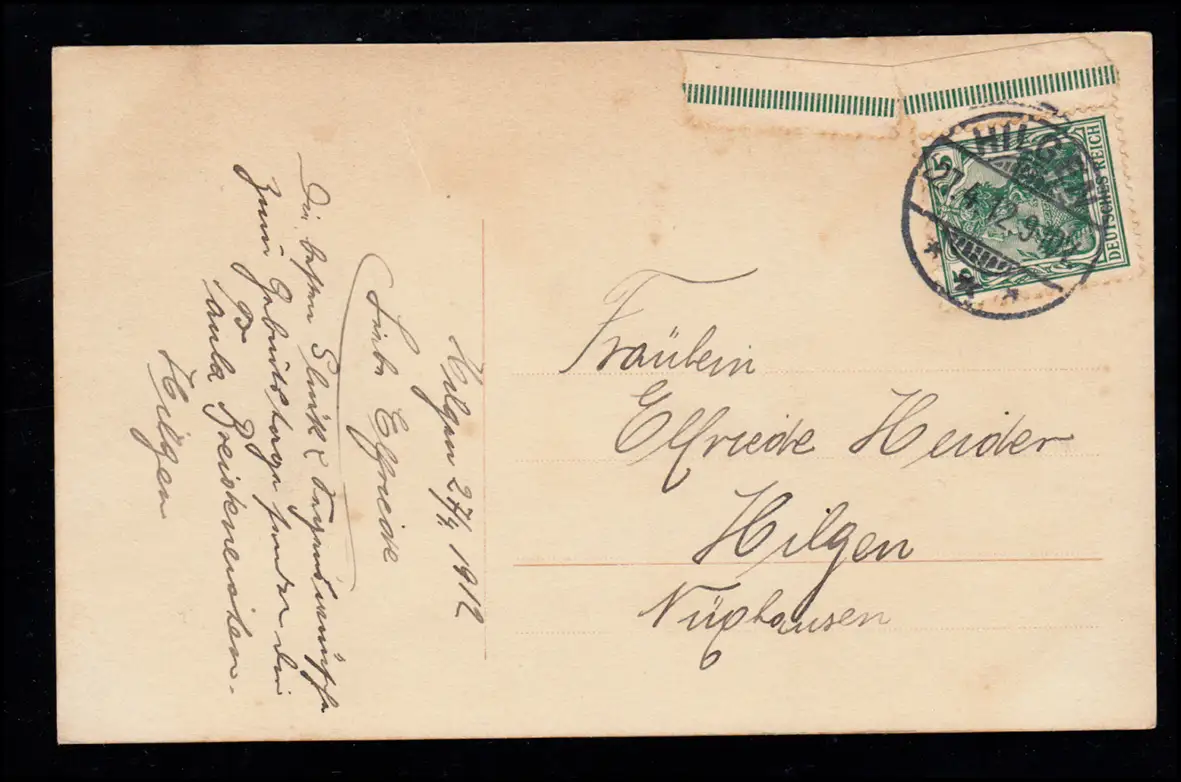 HILGEN
27.4.12.9-10V.
5
DEUTSCHES REICH
Hilgen 27/4 1912
Liebe Elfriede
Die besten Glück & Segenswünsche
zum Geburtstage sendet dir
Paula
Hilgen
Fräulein
Elfriede Heider
Hilgen
Nüxhausen